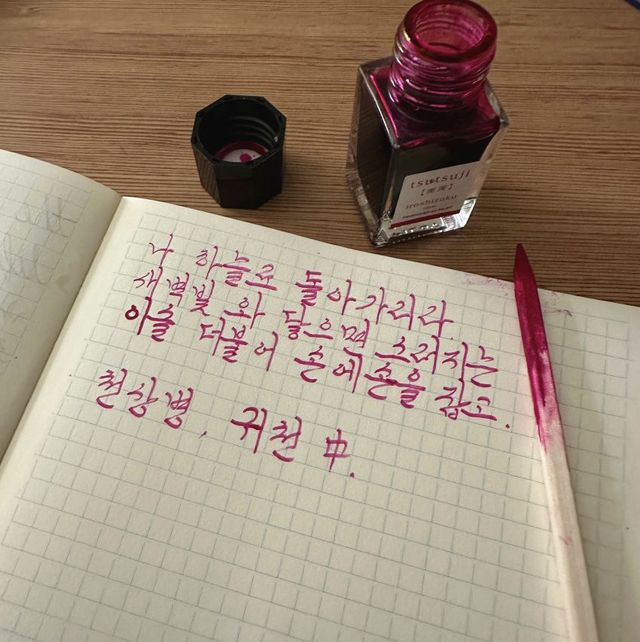 tsutsuji
[躑躅]
iroshizuku
나 하늘로 돌아가리라.
새벽빛 와 닿으면 스러지는
이슬 더불어 손에 손을 잡고.
천상병, 귀천 中.